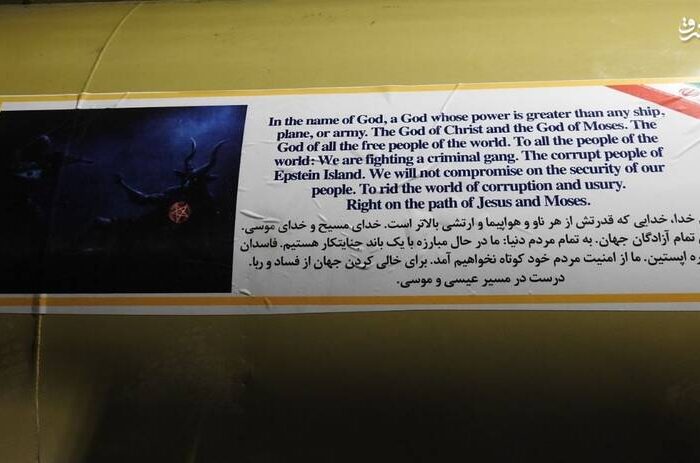 مشرق
In the name of God, a God whose power is greater than any ship,
plane, or army. The God of Christ and the God of Moses. The
God of all the free people of the world. To all the people of the
world: We are fighting a criminal gang. The corrupt people of
Epstein Island. We will not compromise on the security of our
people. To rid the world of corruption and usury.
Right on the path of Jesus and Moses.
خدا، خدایی که قدرتش از هر ناو و هواپیما و ارتشی بالاتر است. خدای مسیح و خدای موسی.
تمام آزادگان جهان. به تمام مردم دنیا: ما در حال مبارزه با یک باند جنایتکار هستیم. فاسدان
اپستین. ما از امنیت مردم خود کوتاه نخواهیم آمد. برای خالی کردن جهان از فساد و ربا.
درست در مسیر عیسی و موسی.